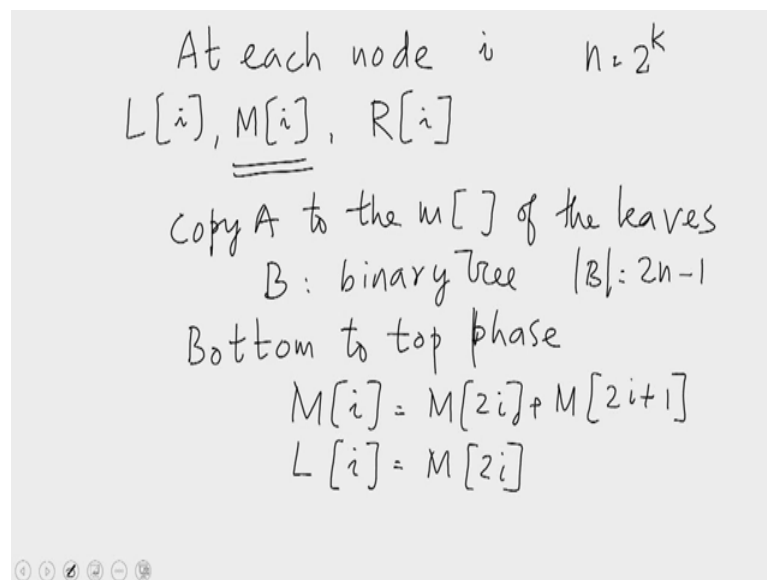 At each node i n = 2^k
L[i], M[i], R[i]
Copy A to the m[ ] of the leaves
B : binary Tree |B| = 2n-1
Bottom to top phase
M[i] = M[2i] + M[2i+1]
L[i] = M[2i]